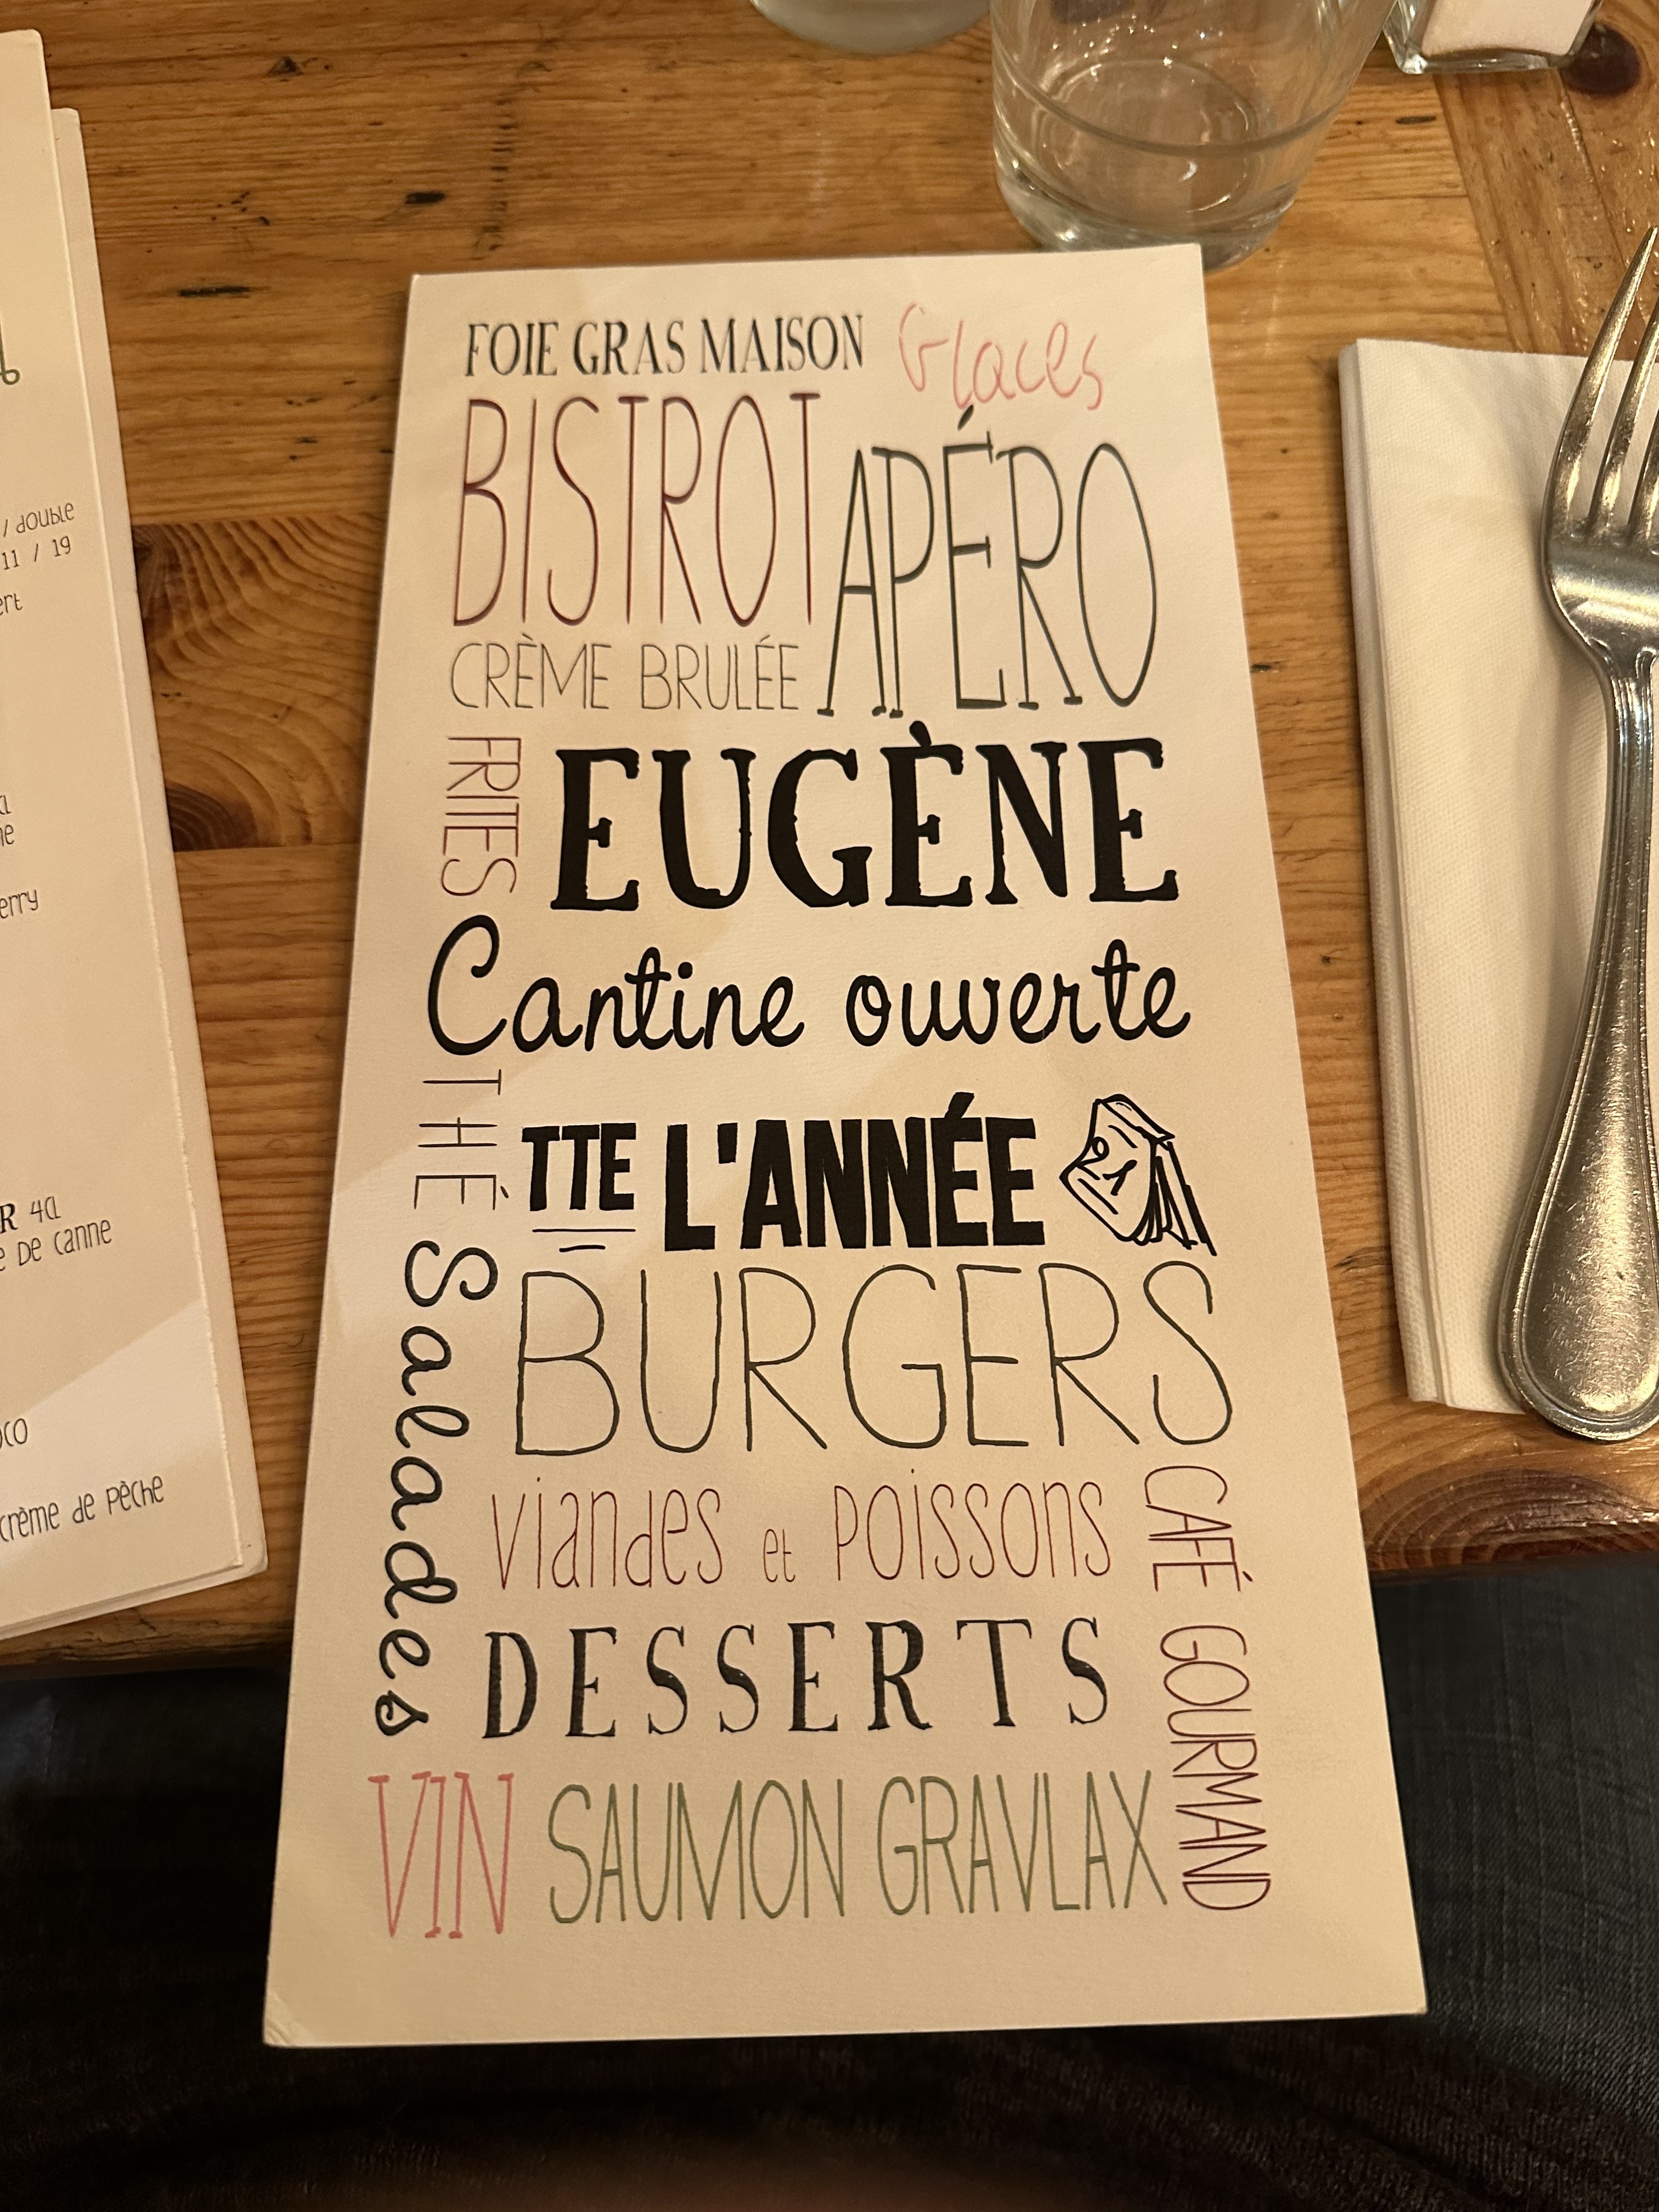 FOIE GRAS MAISON Glaces
BISTROT
APÉRO
CRÈME BRULÉE
FRITES
EUGÈNE
Cantine ouverte
THÉ
TTE L'ANNÉE
Salades
BURGERS
viandes et poissons
CAFÉ GOURMAND
DESSERTS
VIN SAUMON GRAVLAX
/ double
11 / 19
4cl
de canne
crème de pêche